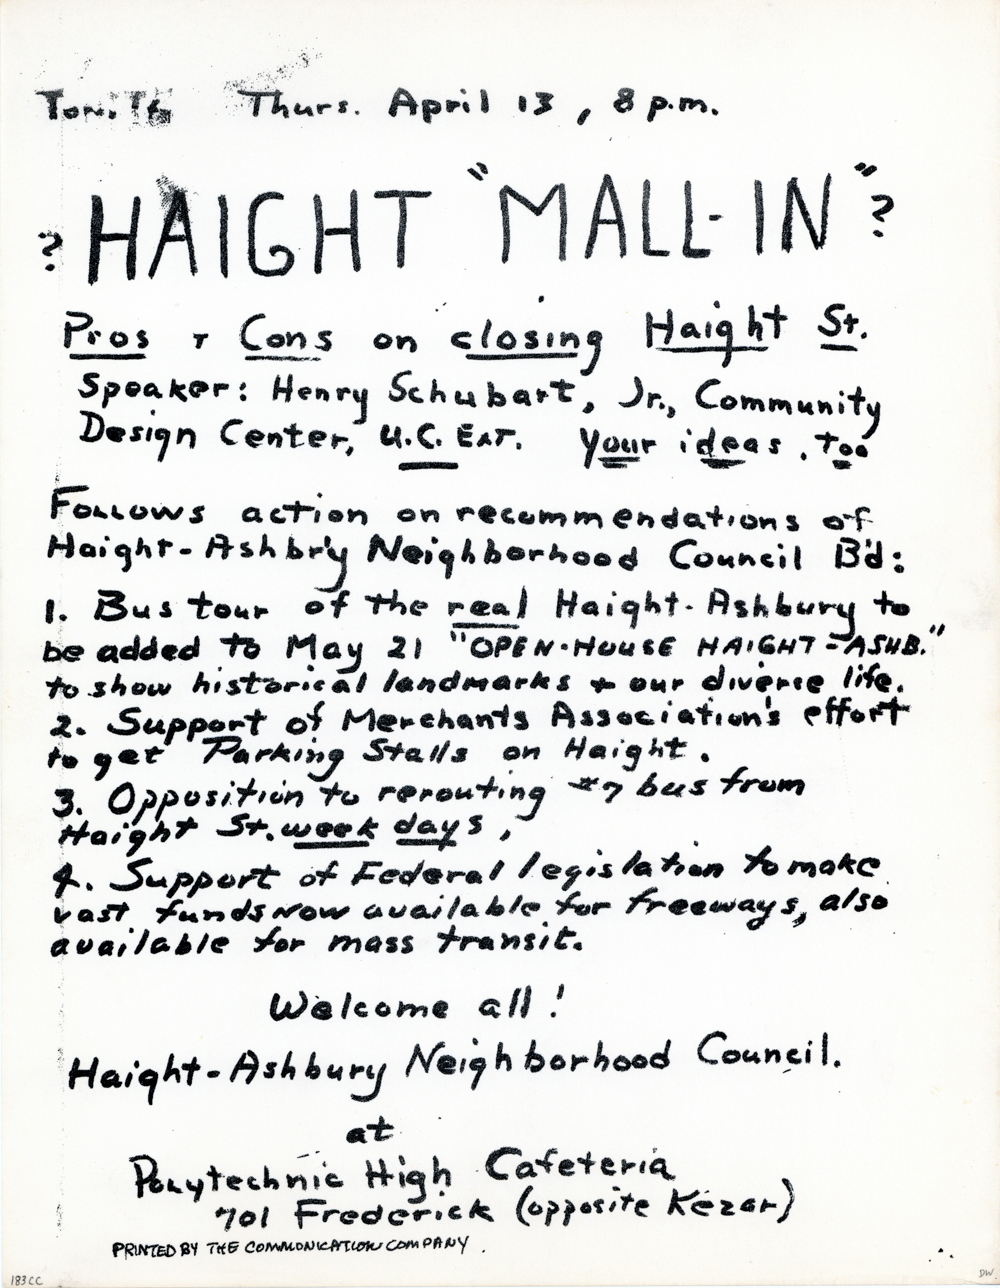 Thurs. April 13, 8 p.m.
? HAIGHT "MALL-IN" ?
Pros + Cons on closing Haight St.
Speaker: Henry Schubart, Jr., Community
Design Center, U.C. Ext. Your ideas, too
Follows action on recommendations of
Haight-Ashbr'y Neighborhood Council B'd:
1. Bus tour of the real Haight-Ashbury to
be added to May 21 "OPEN-HOUSE HAIGHT-ASHB."
to show historical landmarks + our diverse life.
2. Support of Merchants Association's effort
to get Parking Stalls on Haight.
3. Opposition to rerouting #7 bus from
Haight St. week days,
4. Support of Federal legislation to make
vast funds now available for freeways, also
available for mass transit.
Welcome all!
Haight-Ashbury Neighborhood Council.
at
Polytechnic High Cafeteria
701 Frederick (opposite Kezar)
PRINTED BY THE COMMUNICATION COMPANY.
183CC
DW